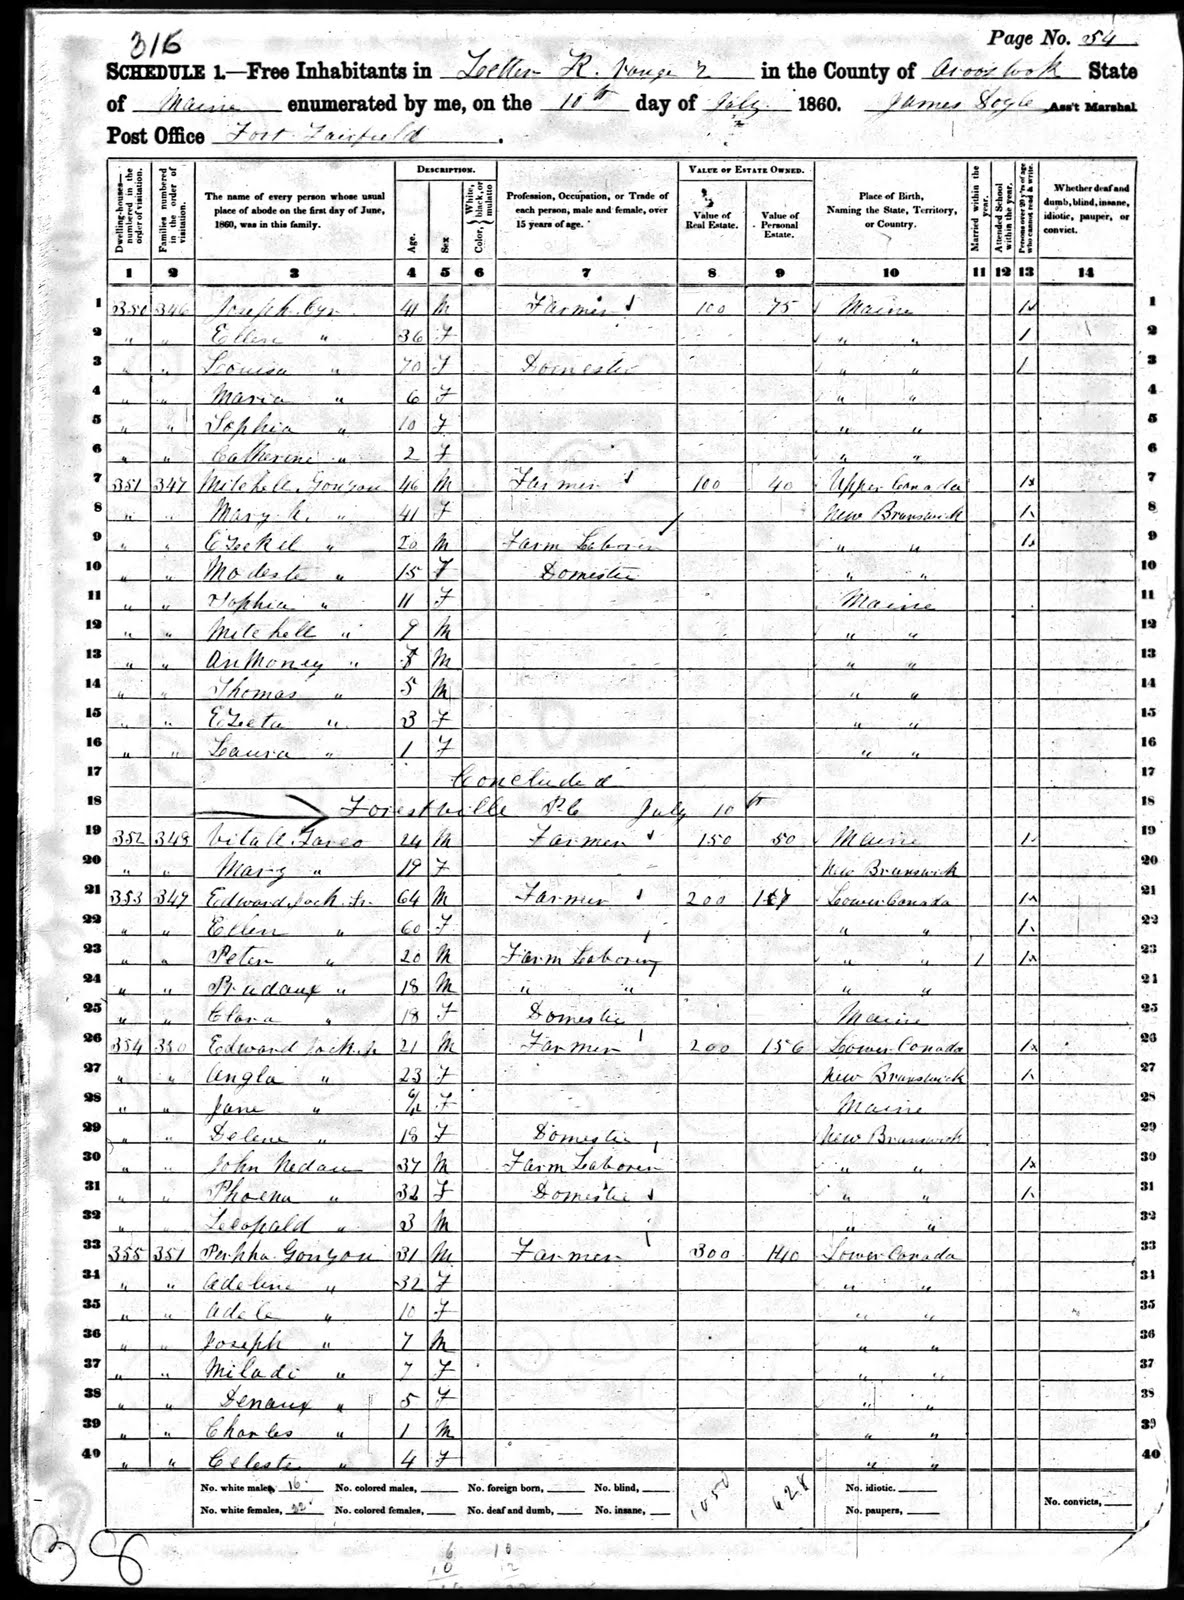 316
Page No. 54
SCHEDULE 1.—Free Inhabitants in Letter K. range 2 in the County of Aroostook State
of Maine enumerated by me, on the 10th day of July 1860. James Doyle Ass't Marshal
Post Office Fort Fairfield.
Dwelling-houses—numbered in the order of visitation. Families numbered in the order of visitation. The name of every person whose usual place of abode on the first day of June, 1860, was in this family. DESCRIPTION. Age. Sex Color, White, black, or mulatto Profession, Occupation, or Trade of each person, male and female, over 15 years of age. VALUE OF ESTATE OWNED. Value of Real Estate. Value of Personal Estate. Place of Birth, Naming the State, Territory, or Country. Married within the year. Attended School within the year. Persons over 20 y'rs of age who cannot read & write. Whether deaf and dumb, blind, insane, idiotic, pauper, or convict.
1 2 3 4 5 6 7 8 9 10 11 12 13 14
1 350 346 Joseph Cyr 41 M Farmer 100 75 Maine 1 1
2 " " Ellen " 36 F " " 1 2
3 " " Louisa " 70 F Domestic " " 1 3
4 " " Maria " 6 F " " 4
5 " " Sophia " 10 F " " 5
6 " " Catherine " 2 F " " 6
7 351 347 Mitchell Gonyou 46 M Farmer 100 40 Upper Canada 1 7
8 " " Mary A. " 41 F New Brunswick 1 8
9 " " Ezekel " 20 M Farm Laborer " " 1 9
10 " " Modeste " 15 F Domestic " " 10
11 " " Sophia " 11 F Maine 11
12 " " Mitchell " 9 M " " 12
13 " " Anthoney " M " " 13
14 " " Thomas " 5 M " " 14
15 " " Ezeta " 3 F " " 15
16 " " Laura " 1 F " " 16
17 Concluded 17
18 Forestville P.O July 10th 18
19 352 348 Vitall 24 M Farmer 150 50 Maine 1 19
20 " " Mary " 19 F New Brunswick 20
21 353 349 Edward Jack Sr. 64 M Farmer 200 Lower Canada 1 21
22 " " Ellen " 60 F " " 1 22
23 " " Peter " 20 M Farm Laborer " " 1 1 23
24 " " Prudaux " 18 M " " " " 24
25 " " Clara " 18 F Domestic Maine 25
26 354 350 Edward Jack Jr 21 M Farmer 200 156 Lower Canada 1 26
27 " " Angla " 23 F New Brunswick 1 27
28 " " Jane " F Maine 28
29 " " Delene " 18 F Domestic New Brunswick 29
30 " " John Nedau 37 M Farm Laborer " " 1 30
31 " " Phoena " 32 F Domestic " " 1 31
32 " " Leopald " 3 M " " 32
33 355 351 Gonyou 31 M Farmer 300 140 Lower Canada 33
34 " " Adeline " 32 F " " 34
35 " " Adele " 10 F " " 35
36 " " Joseph " 7 M " " 36
37 " " Miladi " 7 F " " 37
38 " " Denaux " 5 F " " 38
39 " " Charles " 1 M " " 39
40 " " Celeste " 4 F " " 40
No. white males, 16 No. colored males, No. foreign born, No. blind, 1050 628 No. idiotic.
No. white females, 22 No. colored females, No. deaf and dumb, No. insane, No. paupers, No. convicts,
38
6 10
10 12